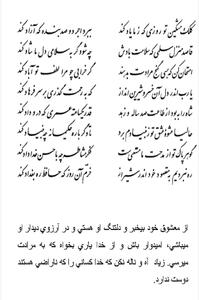 کلک مشکین تو روزی که ز ما یاد کند ببرد اجر دو صد بنده که آزاد کند
قاصد منزل سلمی که سلامت بادش چه شود گر به سلامی دل ما شاد کند
امتحان کن که بسی گنج مرادت بدهند گر خرابی چو مرا لطف تو آباد کند
یارب اندر دل آن خسرو شیرین انداز که به رحمت گذری بر سر فرهاد کند
شاه را به بود از طاعت صد ساله و زهد قدر یکساعته عمری که درو داد کند
حالیا عشوهٔ عشق تو ز بنیادم برد تا دگر باره حکیمانه چه بنیاد کند
گوهر پاک تو از مدحت ما مستغنیست فکر مشاطه چه با حسن خداداد کند
ره نبردیم به مقصود خود اندر شیراز خرم آن روز که حافظ ره بغداد کند
از معشوق خود بیخبر و دلتنگ او هستي و در آرزوي ديدار او
ميباشي، اميدوار باش و از خدا ياري بخواه که به مرادت
ميرسي. زياد آه و ناله نکن که خدا کساني را که ناراضي هستند
دوست ندارد.